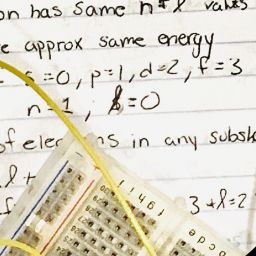 on has same n & l values
e approx same energy
s=0, p=1, d=2, f=3
n=1, l=0
of elec ns in any subsh
l +
f 3+l=2
f g h i j
c d e